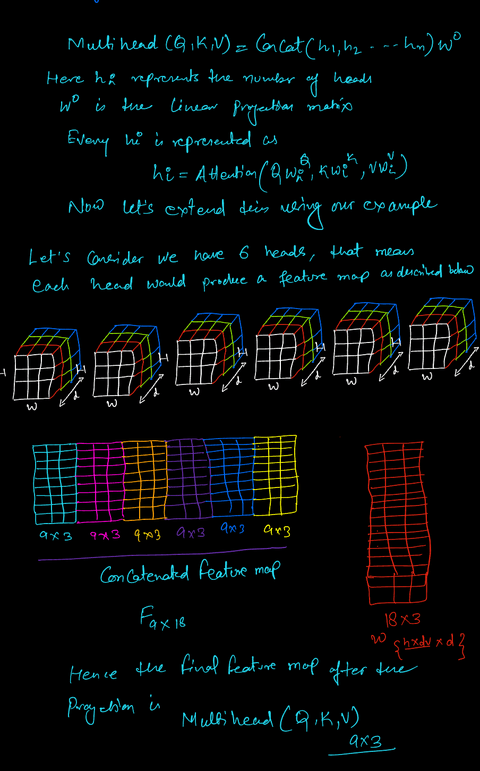 Multihead (Q,K,V) = Concat (h1, h2 ---- hn) W^O
Here hi represents the number of heads
W^O is the linear projection matrix
Every hi is represented as
hi = Attention (QWi^Q, KWi^K, VWi^V)
Now let's extend this using our example
Let's consider we have 6 heads, that means
each head would produce a feature map as described below
H H H H H H
d d d d d d
W W W W W W
9x3 9x3 9x3 9x3 9x3 9x3
Concatenated feature map
F9x18
18x3
W {hxdv x d}
Hence the final feature map after the
projection is
Multihead (Q,K,V)
9x3